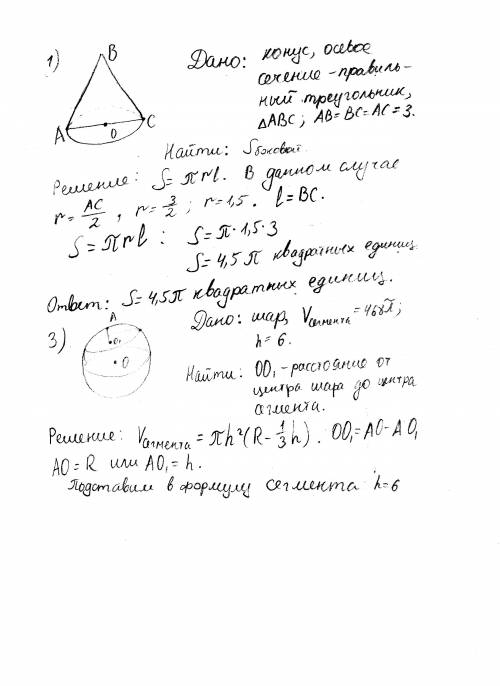 1)
B
A
C
O
Дано: конус, осевое
сечение - правиль-
ный треугольник,
△ABC; AB=BC=AC=3.
Найти: Sбоковой.
Решение: S=πrl. В данном случае
r=AC/2, r=3/2; r=1,5. l=BC.
S=πrl : S=π·1,5·3
S=4,5π квадратных единиц
Ответ: S=4,5π квадратных единиц.
3)
A
O₁
O
Дано: шар, Vсегмента=468π;
h=6.
Найти: OO₁-расстояние от
центра шара до центра
сегмента.
Решение: Vсегмента=πh²(R-1/3h). OO₁=AO-AO₁
AO=R или AO₁=h.
Подставим в формулу сегмента h=6